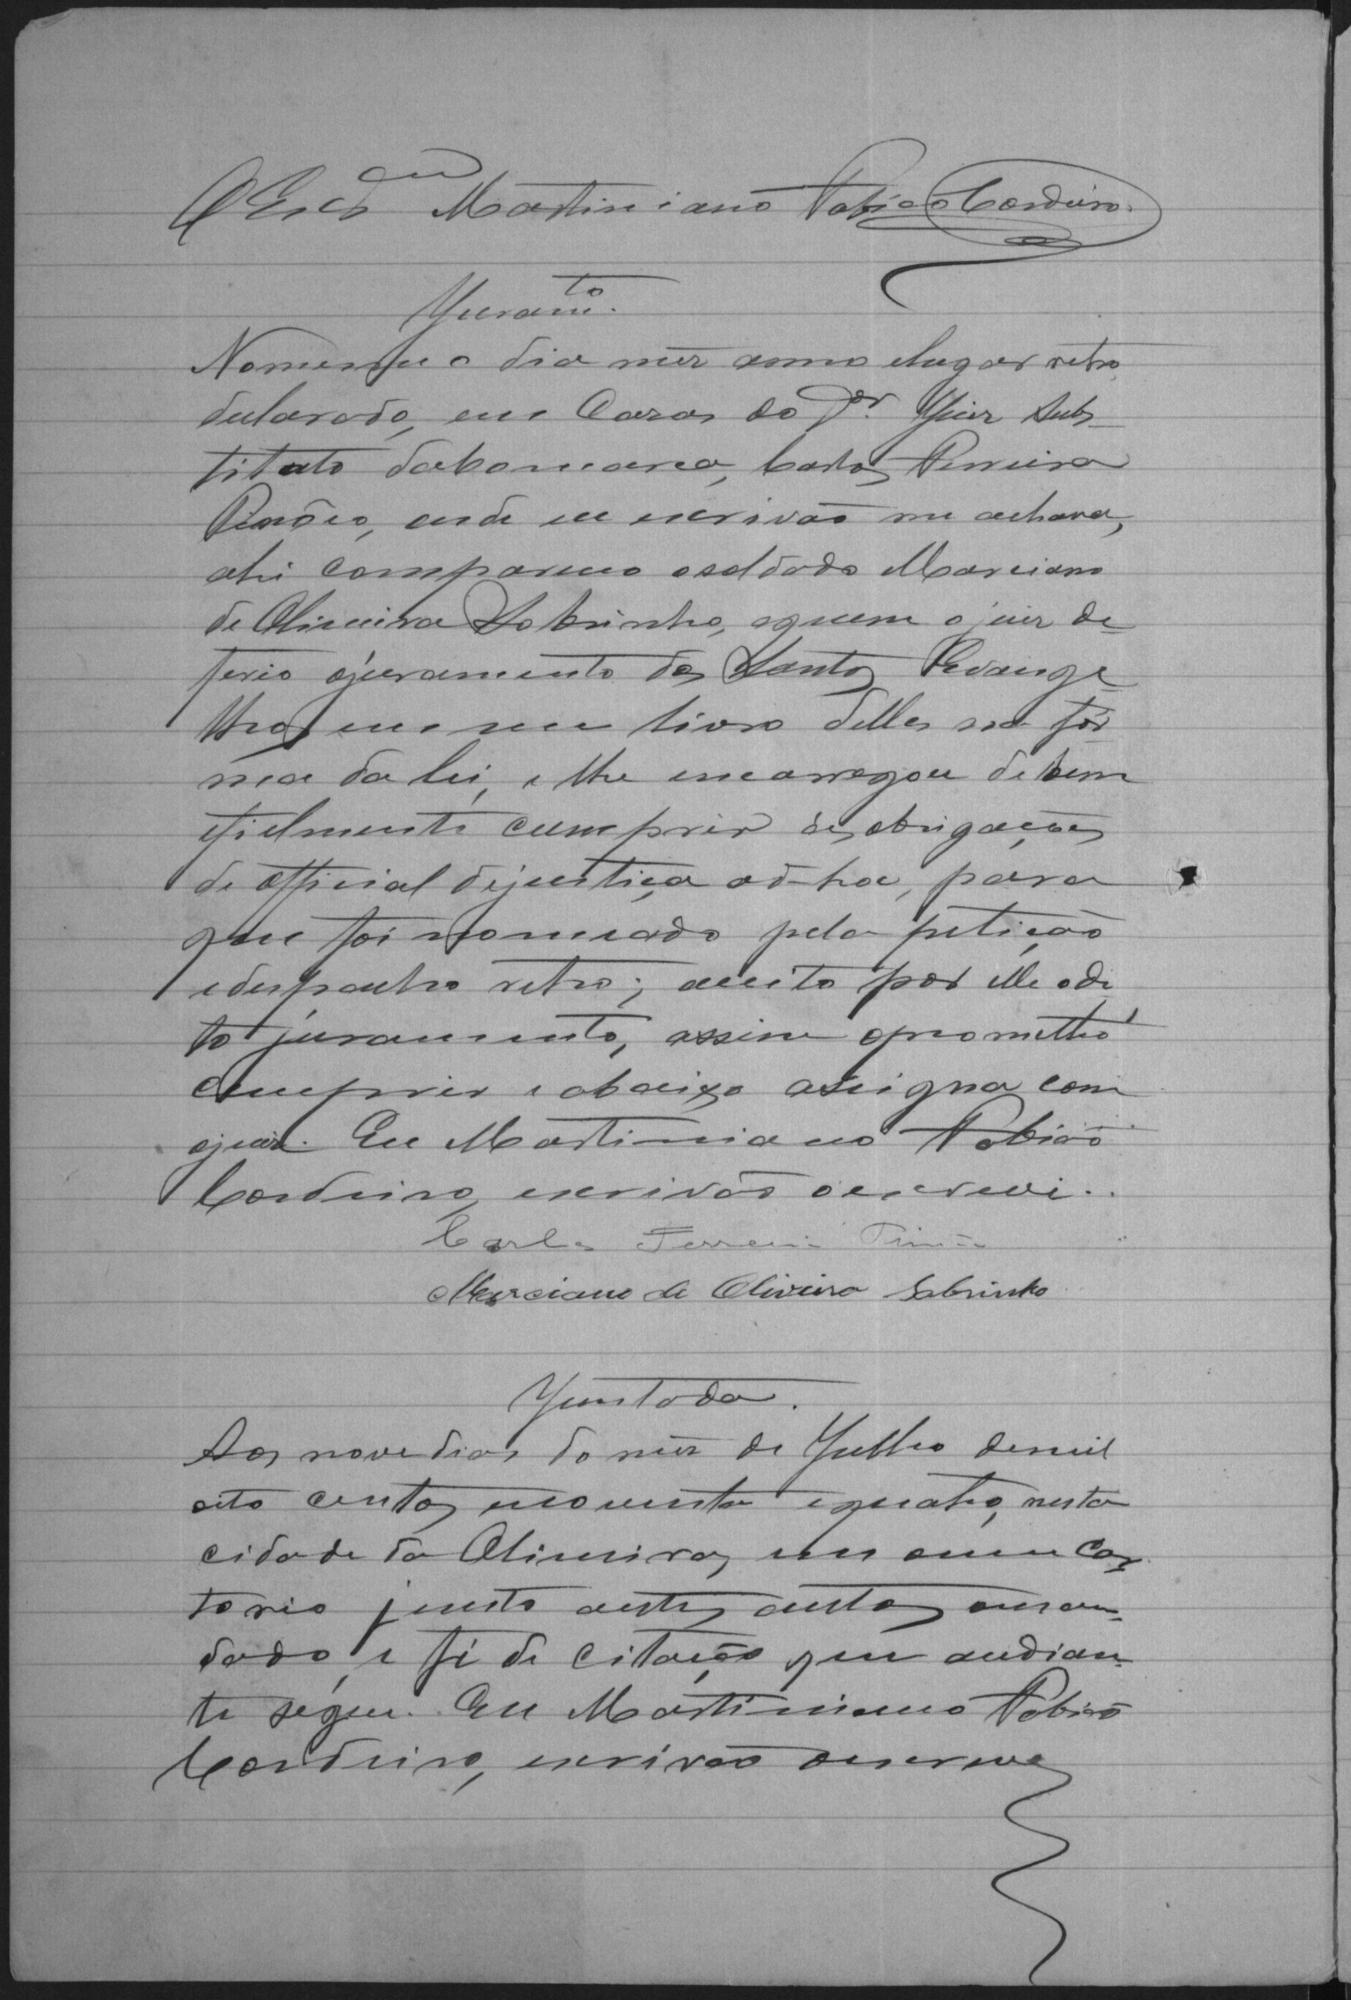 O Escrm Martiniano Fabião Cordeiro.
Juramto.
No mesmo dia mez anno elugar retro
declarado, em Casas do Dor. Juiz Subs-
tituto dacomarca, Carlos Ferreira
onde eu escrivão me achava,
ahi compareceo osoldado Marciano
de Oliveira Sobrinho, aquem ojuiz de-
ferio ojuramento dos Santos Evange-
lhos em um livro delles na for-
ma da lei, e lhe encarregou debem
efielmente cumprir as obrigações
de official dejustiça ad-hoc, para
que foi nomeado pela petição
edespacho retro; aceito por elle odi-
to juramento, assim oprometteo
cumprir e abaixo assigna com
ojuiz. Eu Martiniano Fabião
Cordeiro, escrivão oescrevi.
Carlos Ferreira
Marciano de Oliveira Sobrinho
Juntada.
Aos nove dias do mez de Julho demil
oito centos enoventa equatro, nesta
cidade da Oliveira, em omeu car-
torio junto aestes autos oman-
dado, e fé de citação que audian-
te segue. Eu Martiniano Fabião
Cordeiro, escrivão oescrevi